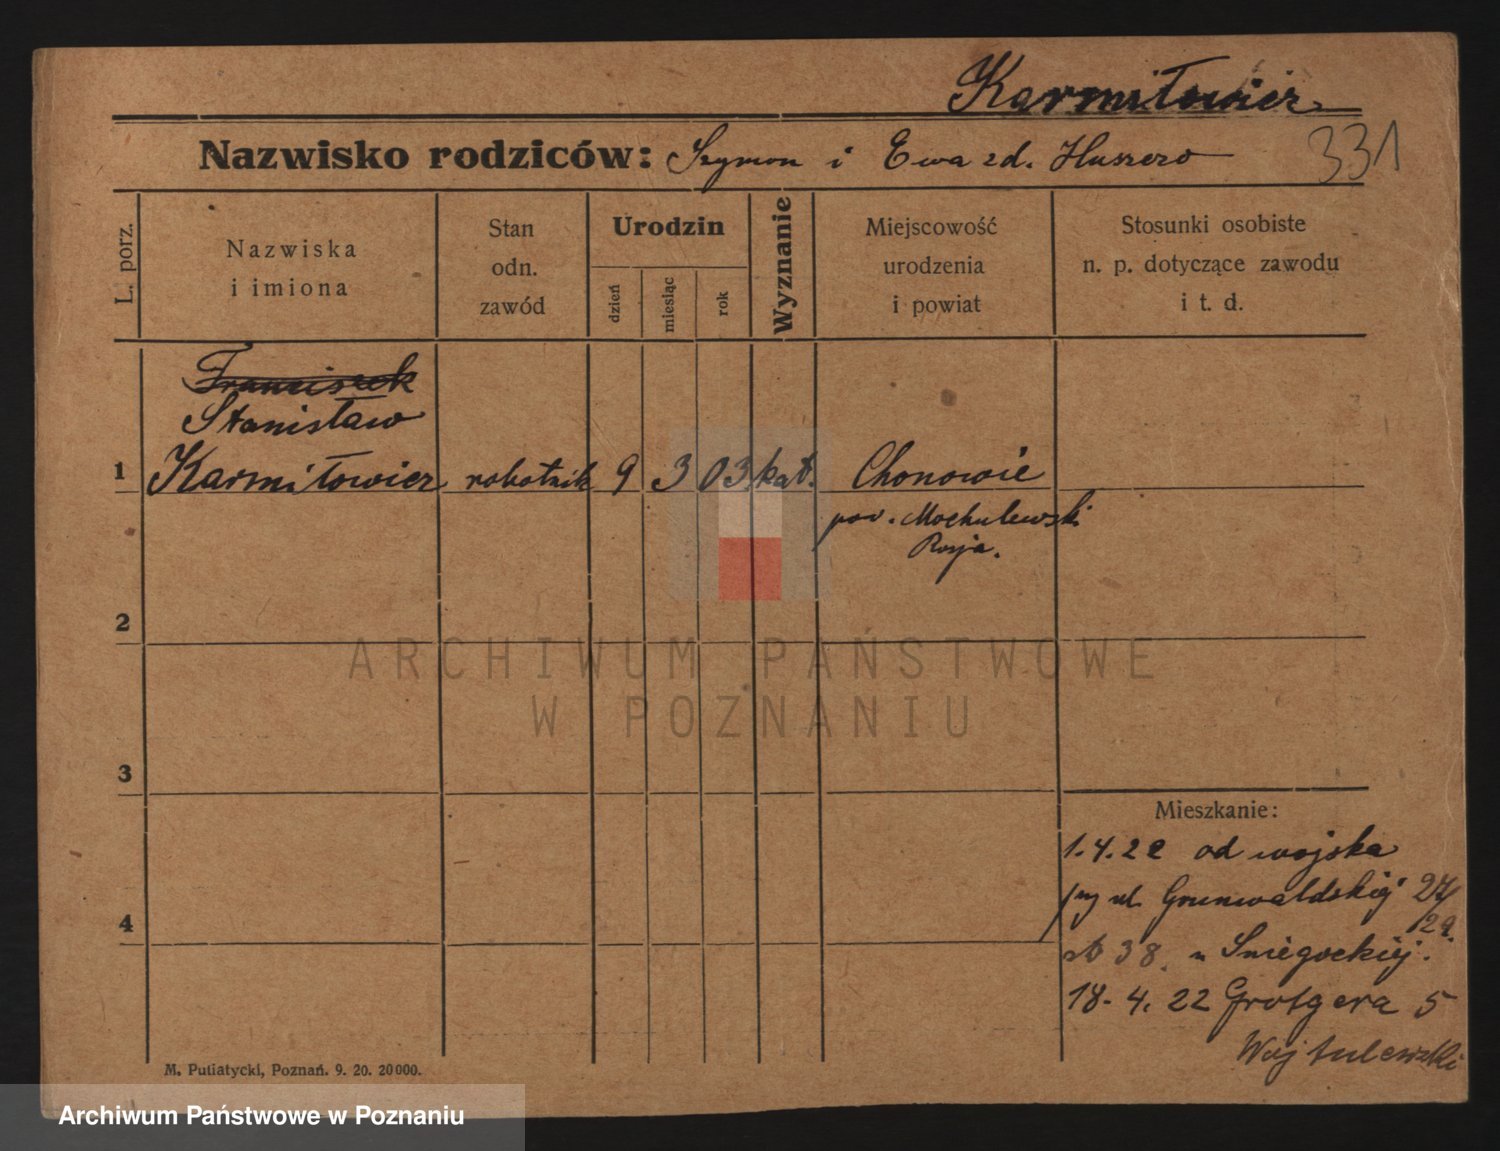 Karmiłowicz
Nazwisko rodziców: Szymon i Ewa zd. Huszczo
331
L. porz.
Nazwiska
i imiona
Stan
odn.
zawód
Urodzin
dzień
miesiąc
rok
Wyznanie
Miejscowość
urodzenia
i powiat
Stosunki osobiste
n. p. dotyczące zawodu
i t. d.
Franciszek
Stanisław
1 Karmiłowicz robotnik 9 3 03 kat. Chonowie
pow. Mochulewski
Rosja.
2
3
4
Mieszkanie:
1.4.22 od wojska
przy ul. Grunwaldskiej 27/
29.
st 38. u Śniegockiej.
18.4.22 Grotgera 5
Wojtulewski
M. Putiatycki, Poznań. 9. 20. 20000.
ARCHIWUM PAŃSTWOWE
W POZNANIU
Archiwum Państwowe w Poznaniu